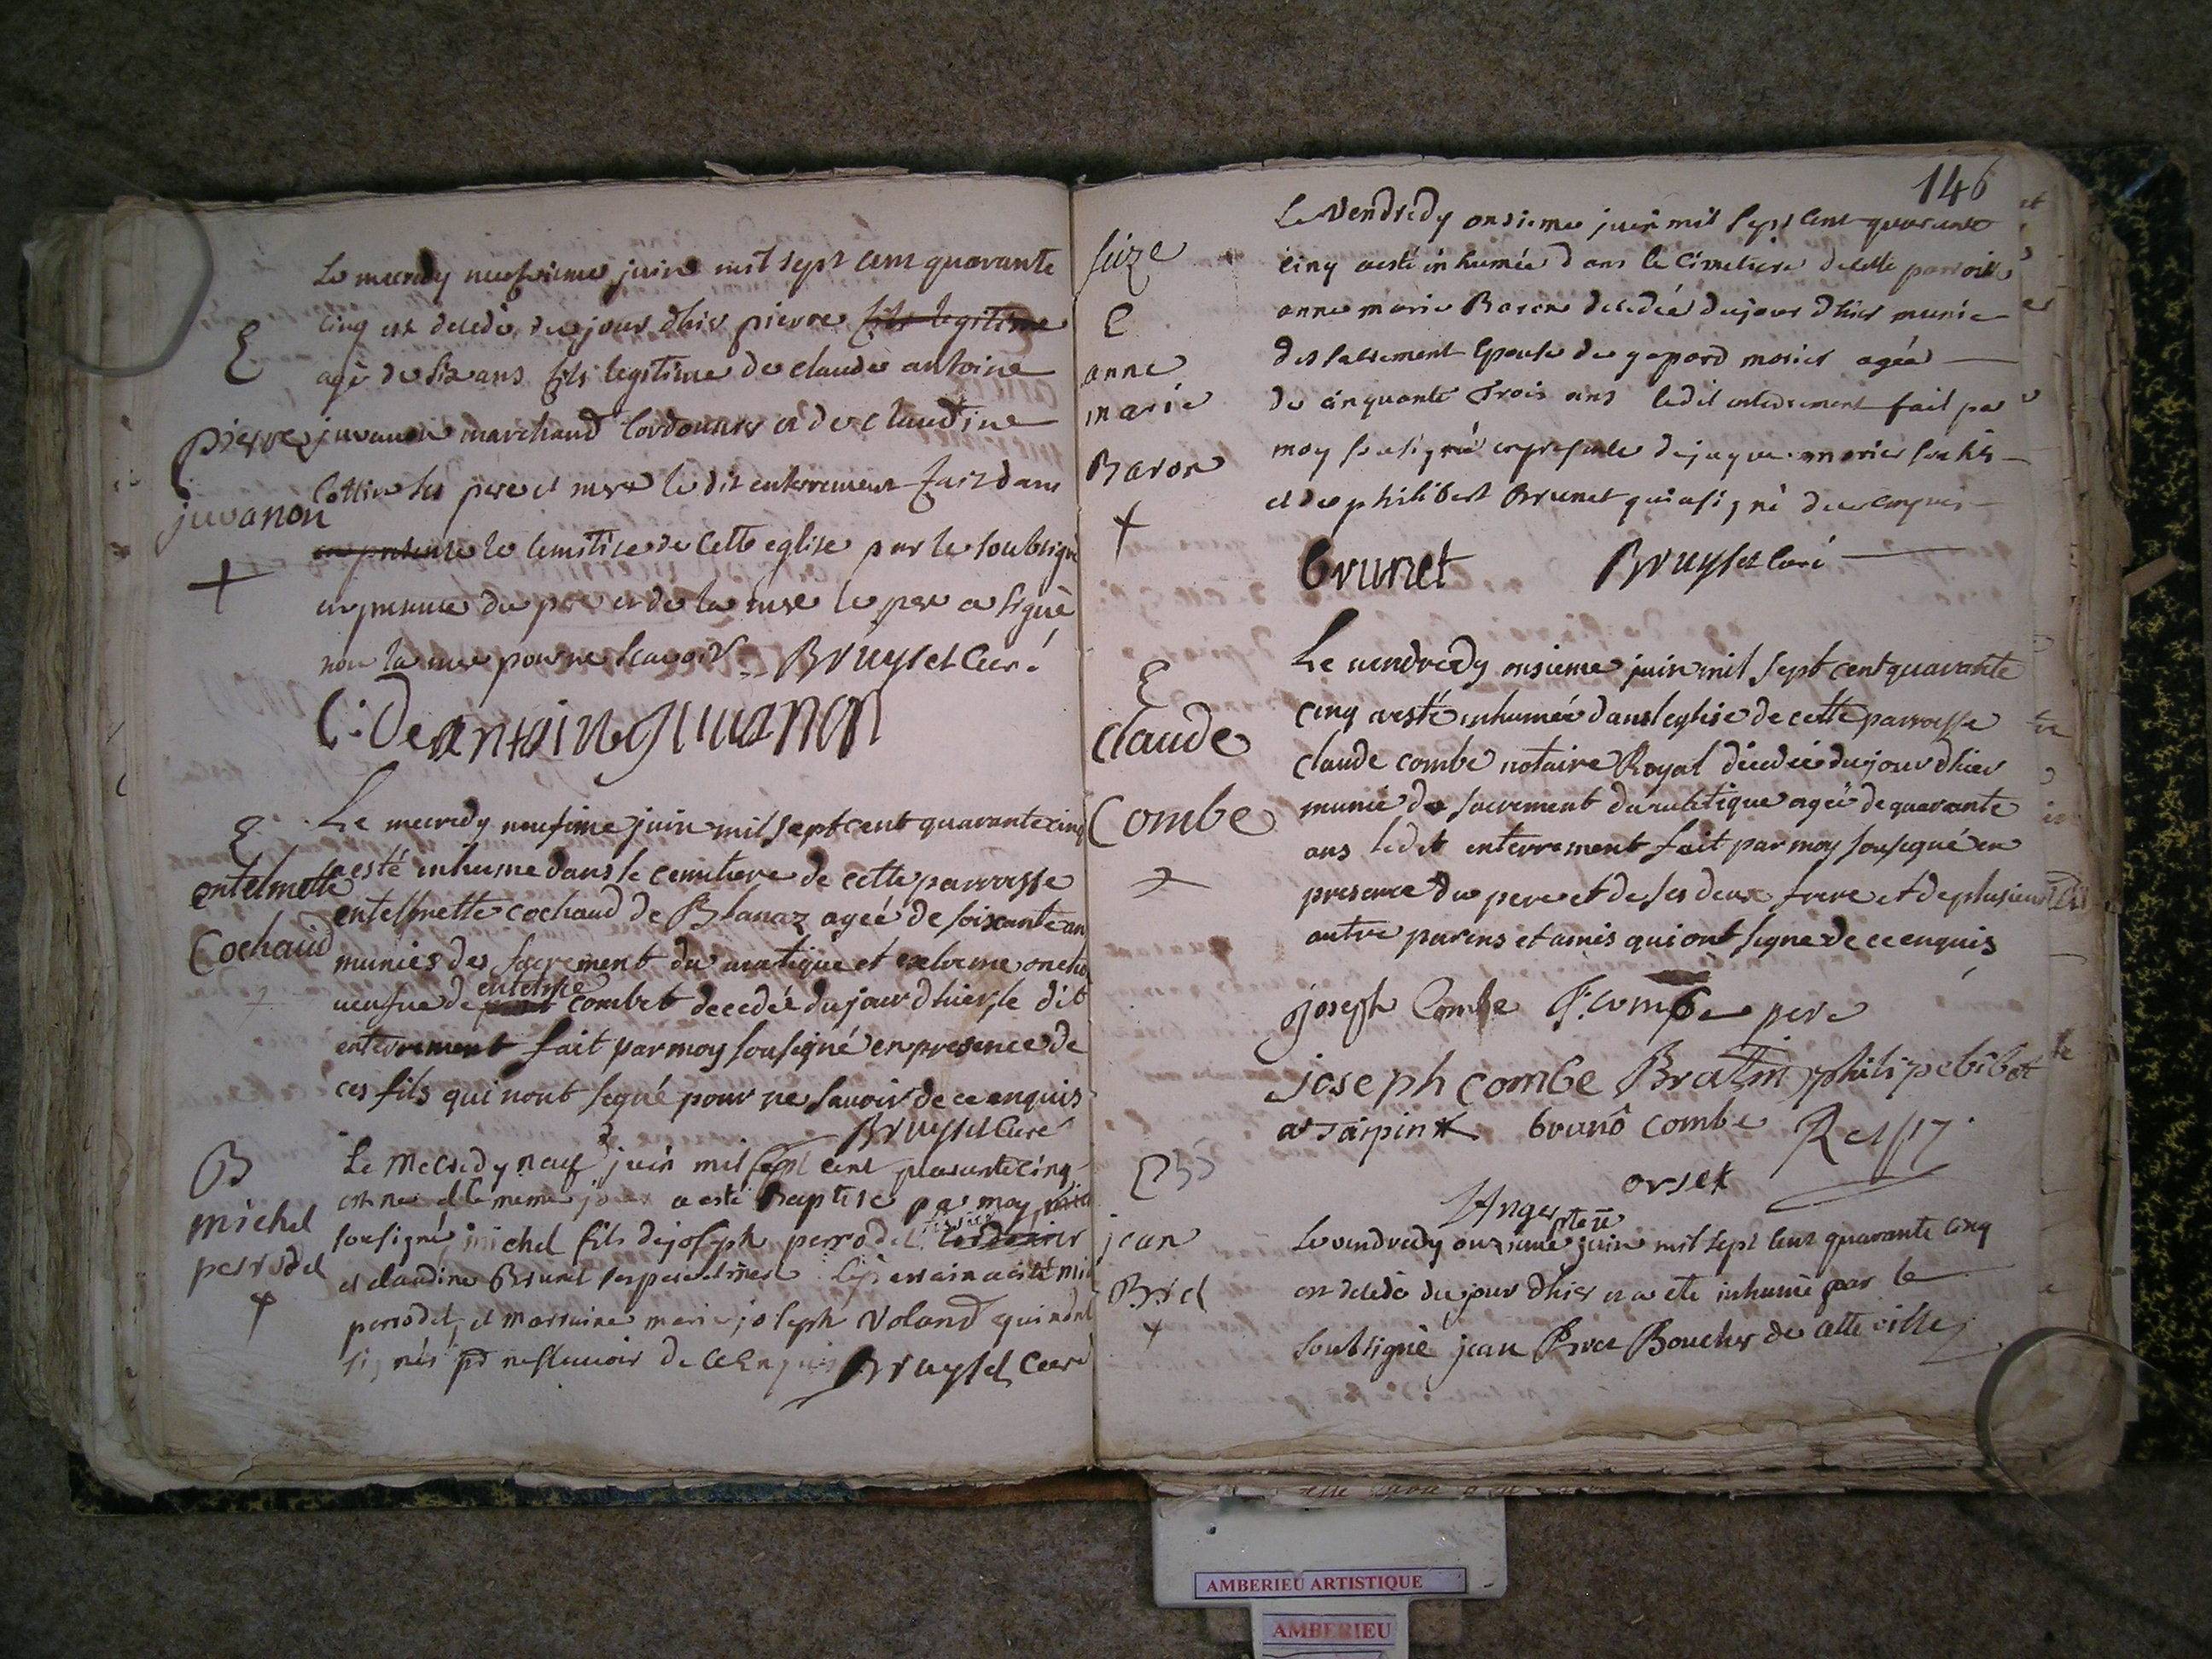 E
Pierre
juvanon
Le mecredy neufvieme juin mil sept cent quarante
cinq est decedé du jour dhier pierre fils legitime
agé de six ans fils legitime de claude antoine
juvanon marchand Cordonnier et de claudine
Cottin ses pere et mere le dit enterrement fait dans
en presence le cemitiere de Cette eglise par le soubsigné
en presence du pere et de la mere le pere a signé
non la mere pour ne scavoir Bruyset Curé
C: De antoine giuvanon
E
entelmette
Cochaud
Le mecredy neufime juin mil sept cent quarante cinq
a esté inhumé dans le cemitiere de cette parroisse
entelmette cochaud de Blanaz ageé de soixante an
muniés des sacrement du viatique et extreme onction
veufue de entelme combet decedée du jour dhier le dit
enterrement fait par moy sousigné en presence de
ces fils qui nont segné pour ne savoir de ce enquis
Bruyset Curé
B
michel
perrodet
Le Mecredy neuf juin mil sept cent quarante cinq
est né et le meme jour a esté Baptisé par moy
sousigné michel fils de joseph perrodet tissier cordonnier
et claudine Brunet ses pere et mere le parrain a esté mi
perrodet, et marraine marie joseph Voland qui nont
signés pr ne scauoir de ce Enquis Bruyset Curé
146
suze
E
anne
marie
Baron
Le Vendredy onsieme juin mil sept cent quarante
cinq a esté inhumée dans le Cimetiere de cette parroisse
anne marie Baron decedée du jour dhier munie
des sacrement Epouse de gaspard morier agée
de cinquante Trois ans ledit enterrement fait par
moy sousigné en presence de jaque morier son fils
et de philibert Brunet qui a signé de ce enquis
brunet Bruyset Curé
E
Claude
Combe
Le vendredy onsieme juin mil sept cent quarante
cinq a esté inhumée dans leglise de cette parroisse
claude combe notaire Royal décedée du jour dhier
munie de sacrement du viatique ageé de quarante
ans ledit enterrement fait par moy sousigné en
presence du pere et de ses deux frere et de plusieurs
autre parens et amis qui ont signe de ce enquis
joseph Combe F. Combe pere
joseph combe Bratin philipe bibet
brunô combe
orset
jean
Bret
Le vendredy onzieme juin mil sept cent quarante cinq
est decedé du jour dhier et a eté inhumé par le
soubsigné jean Bret Boucher de cette ville
AMBERIEU ARTISTIQUE
AMBERIEU